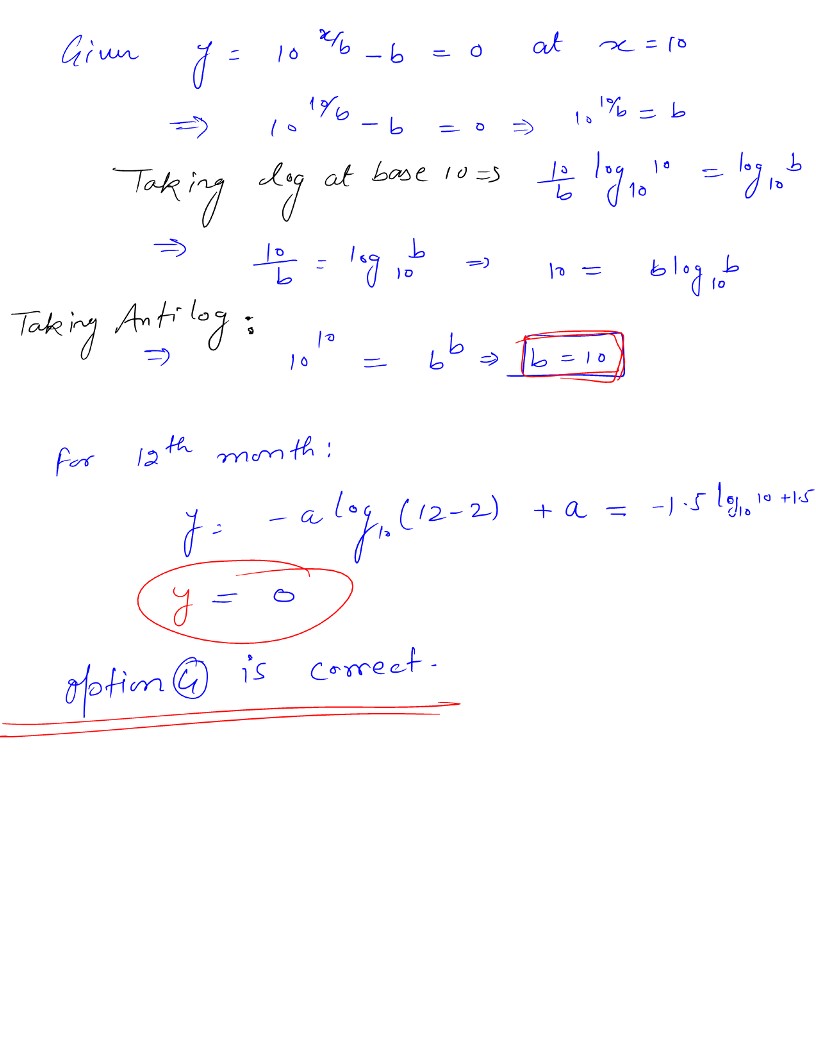 Given y = 10^(x/b) - b = 0 at x = 10
⇒ 10^(10/b) - b = 0 ⇒ 10^(10/b) = b
Taking log at base 10 ⇒ 10/b log₁₀ 10 = log₁₀ b
⇒ 10/b = log₁₀ b ⇒ 10 = b log₁₀ b
Taking Antilog :
⇒ 10^10 = b^b ⇒ b = 10
for 12th month :
y = - a log₁₀ (12-2) + a = -1.5 log₁₀ 10 + 1.5
y = 0
option is correct.